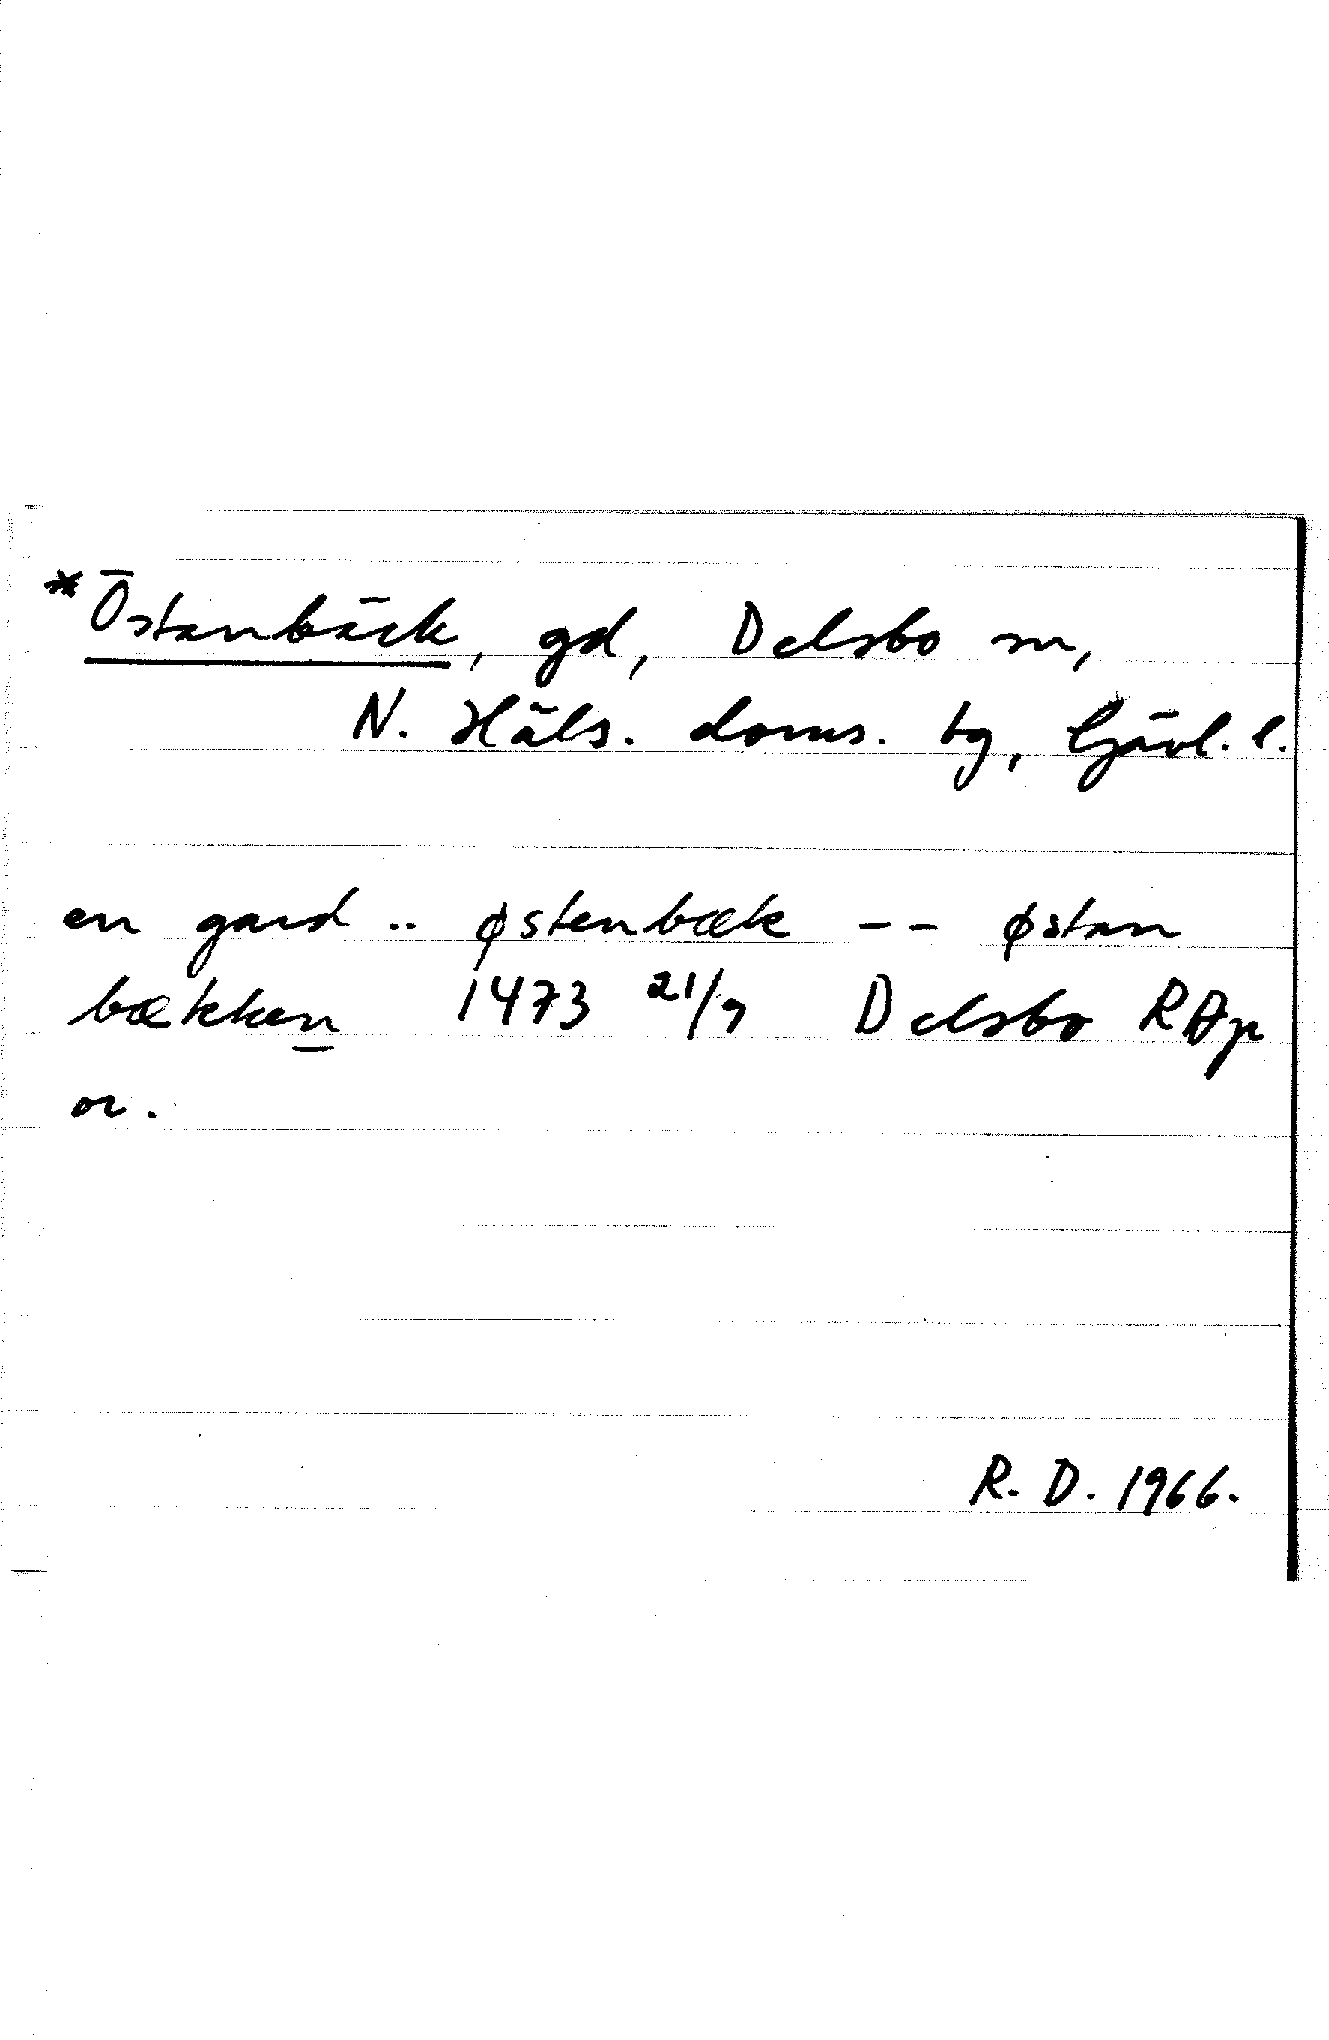 *Östanbäck, gd, Delsbo sn,
N. Häls. doms. tg, Gävl. l.
en gard .. østenbæk -- østan
bækken 1473 21/9 Delsbo RAp
or.
R. D. 1966.